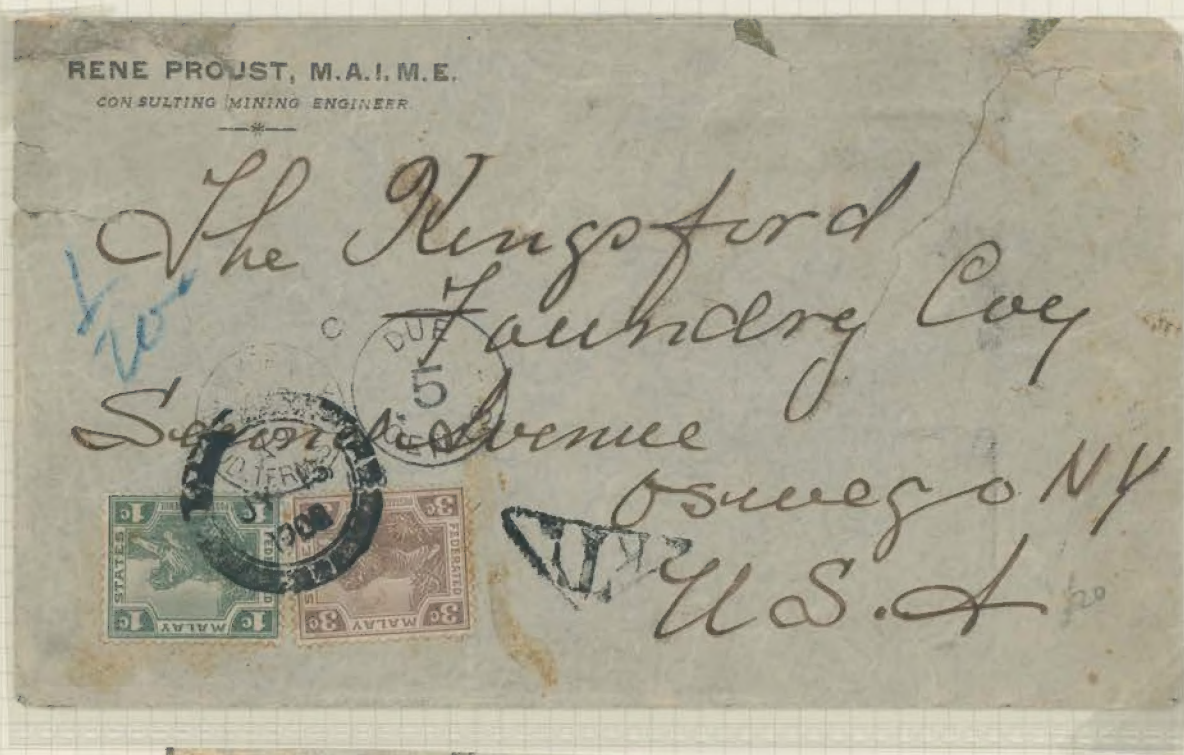 RENE PROUST, M.A.I.M.E.
CONSULTING MINING ENGINEER.
The Kingsford
Foundry Coy
Avenue
Oswego NY
U.S.A
20
C
DUE
5
CEN
1908
1c 1c
STATES
MALAY
1c 1c
3c 3c
FEDERATED
MALAY
3c 3c
20